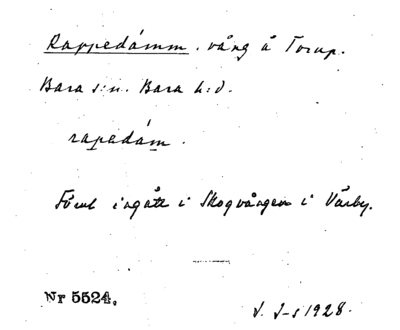 Rappedámm. vång å Torup.
Bara s:n. Bara h:d.
rapedám.
Förut ingått i Skogvången i Värby.
Nr 5524,
J. J-s 1928.